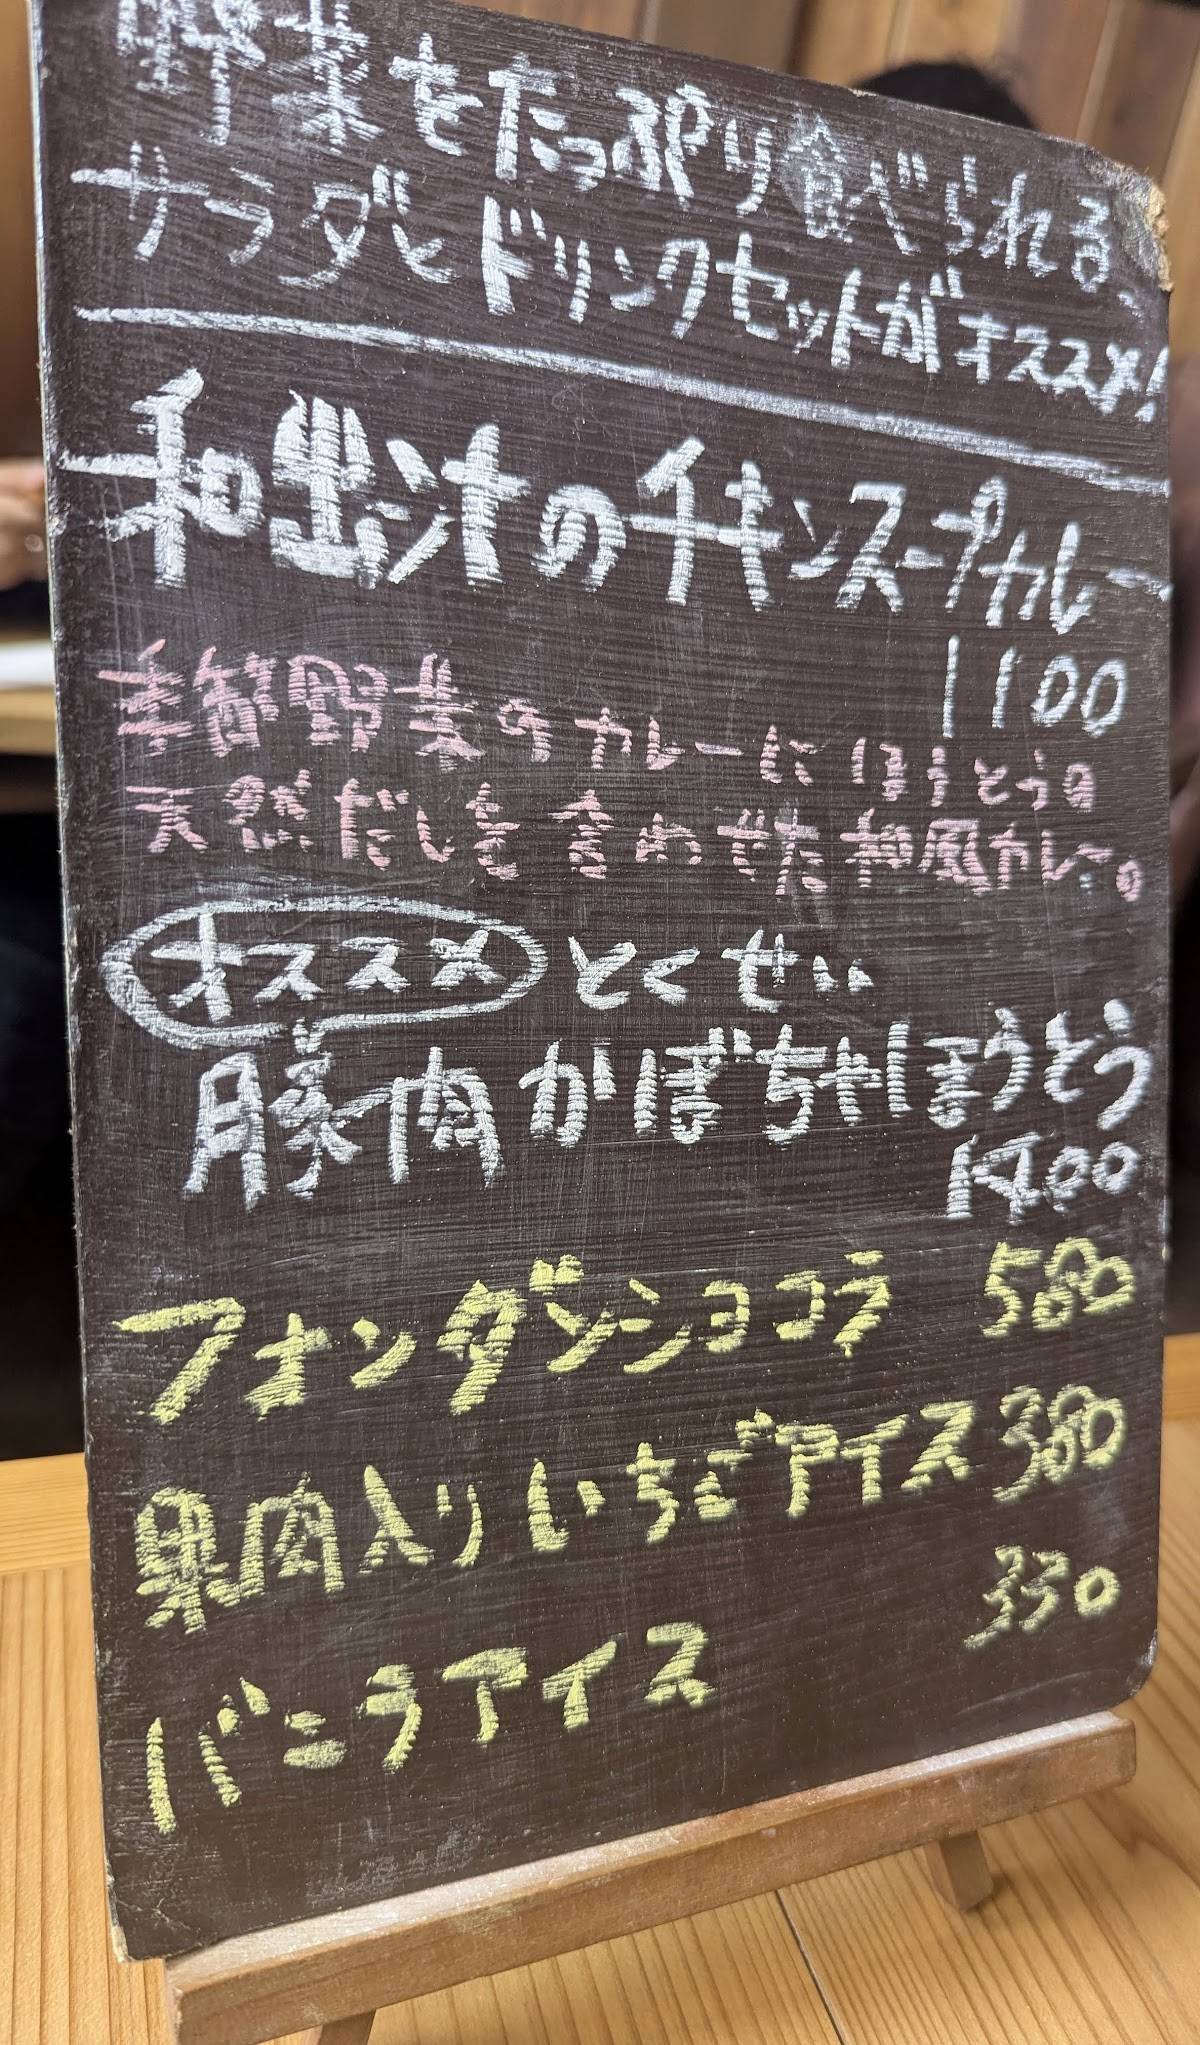 野菜をたっぷり食べられる、
サラダとドリンクセットがオススメ!
和出汁のチキンスープカレー
1100
季節野菜のカレーにほうとうの
天然だしを合わせた和風カレー。
オススメ とくせい
豚肉かぼちゃほうとう
1400
フォンダンショコラ 580
果肉入りいちごアイス 380
バニラアイス 330